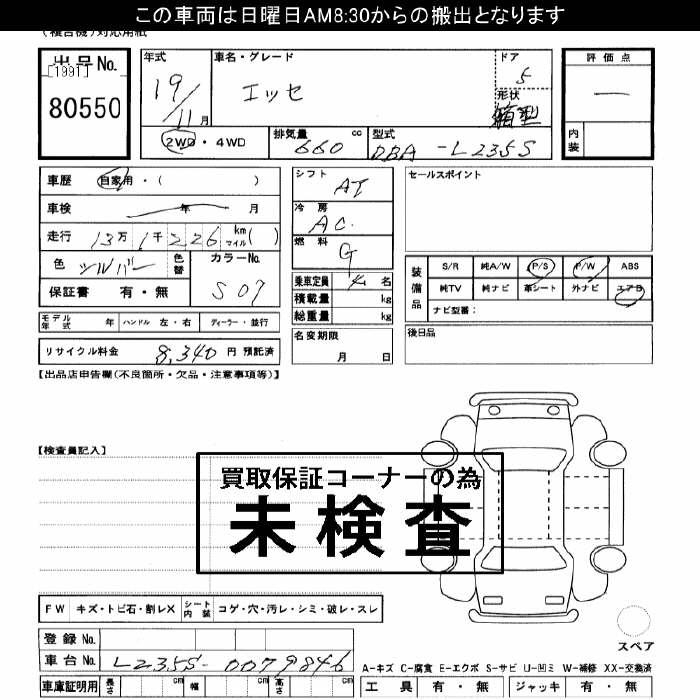 この車両は日曜日AM8:30からの搬出となります
(複合機)対応用紙
出品No.
[1991]
80550
年式
19/11月
車名・グレード
エッセ
ドア
5
形状
箱型
評価点
内装
2WD・4WD
排気量 660 cc
型式 DBA-L235S
車歴 自家用・( )
車検 年 月
走行 13万1千226 km マイル( )
色 シルバー
色替
カラーNo. S07
保証書 有・無
シフト AT
冷房 AC.
燃料 G
乗車定員 4名
積載量 kg
総重量 kg
名変期限
月 日
セールスポイント
装備品
S/R 純A/W P/S P/W ABS
純TV 純ナビ 革シート 外ナビ エアB
ナビ型番:
後日品
モデル年式 年 ハンドル 左・右 ディーラー・並行
リサイクル料金 8,340 円 預託済
【出品店申告欄(不良箇所・欠品・注意事項等)】
【検査員記入】
買取保証コーナーの為
未検査
FW キズ・トビ石・割レX シート内装 コゲ・穴・汚レ・シミ・破レ・スレ
スペア
登録No.
車台No. L235S-0079846
A-キズ C-腐食 E-エクボ S-サビ U-凹ミ W-補修 XX-交換済
車庫証明用 長さ cm 幅 cm 高さ cm
工具 有・無 ジャッキ 有・無